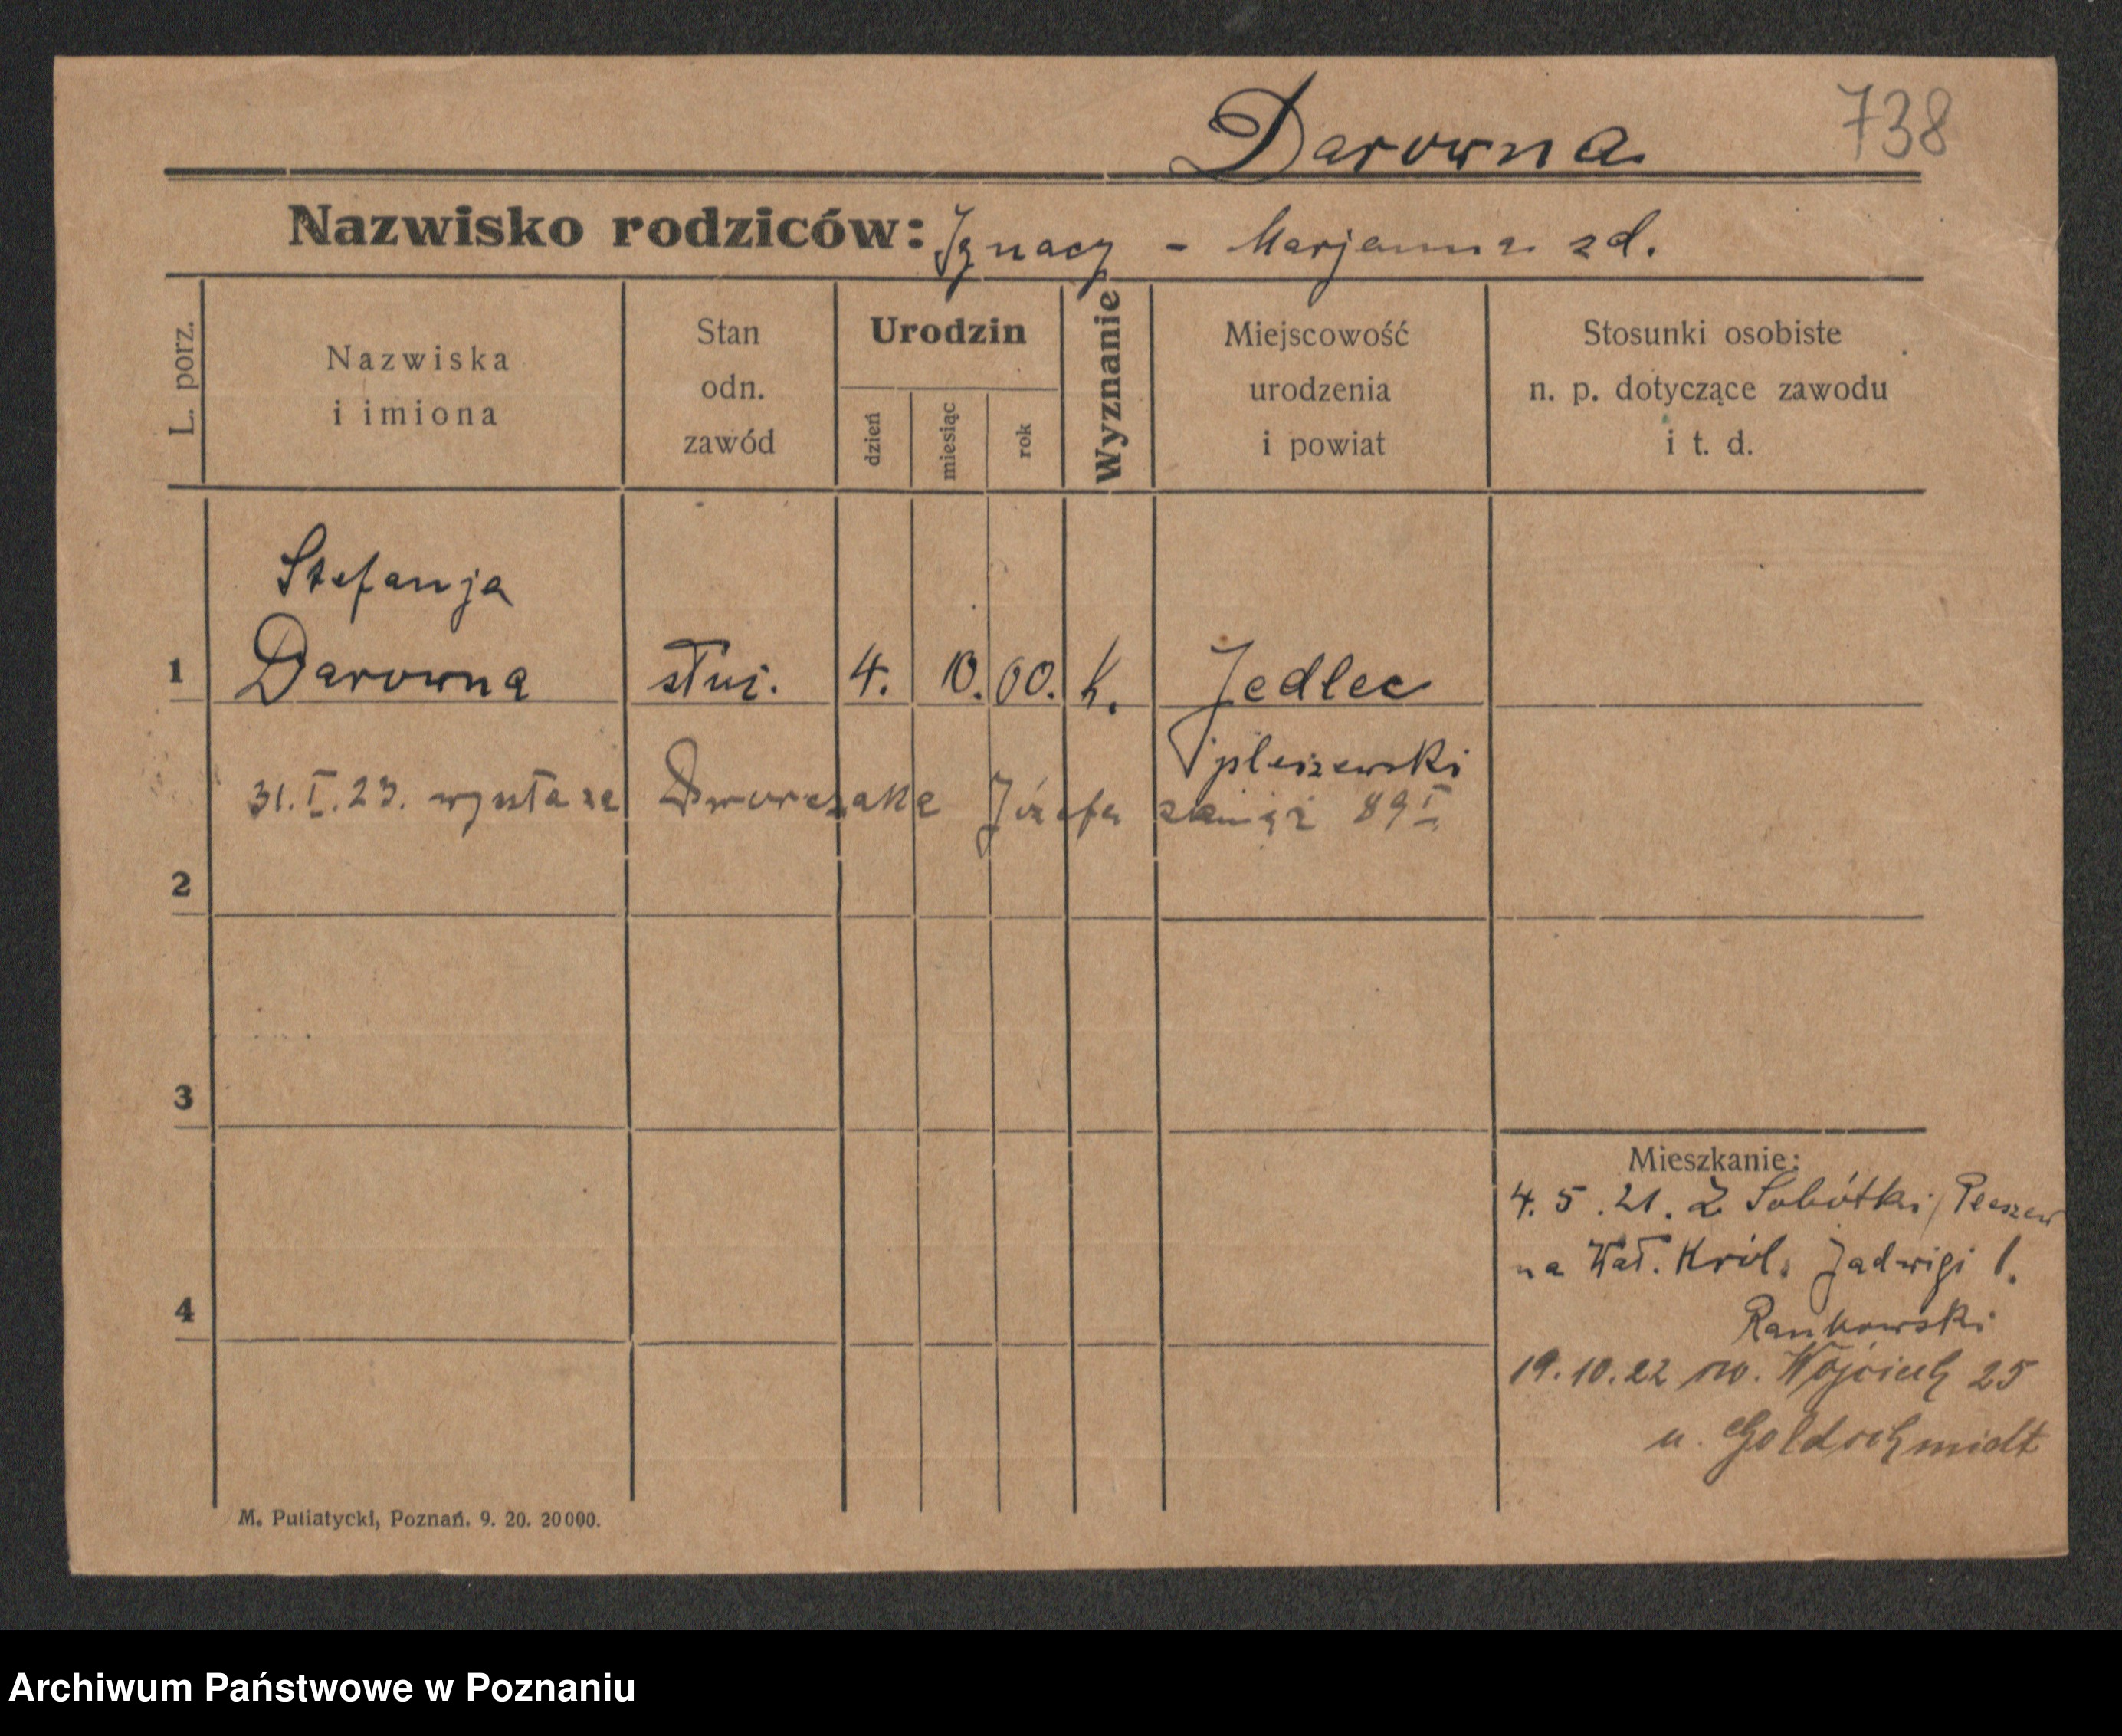 738
Darowna
Nazwisko rodziców: Ignacy - Marjanna zd.
L. porz.
Nazwiska
i imiona
Stan
odn.
zawód
Urodzin
dzień
miesiąc
rok
Wyznanie
Miejscowość
urodzenia
i powiat
Stosunki osobiste
n. p. dotyczące zawodu
i t. d.
Stefanja
1 Darowna służ. 4. 10. 00. k. Jedlec
pleszewski
31. I. 23. wyszła za Dworczaka Józefa 89 I
2
3
Mieszkanie:
4. 5. 21. z Sobótki / Pleszew
na Wał. Król. Jadwigi 1.
4
Rankowski
19.10.22 św. Wojciech 25
u. Goldschmidt
M. Putiatycki, Poznań. 9. 20. 20000.
Archiwum Państwowe w Poznaniu